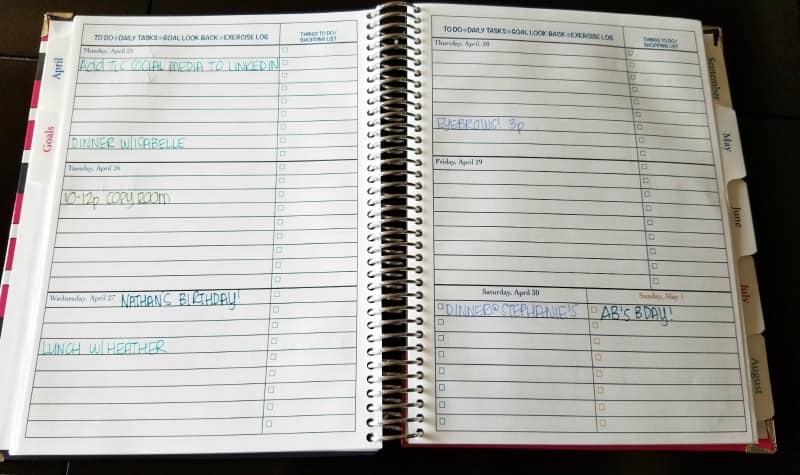 TO DO • DAILY TASKS • GOAL LOOK BACK • EXERCISE LOG
THINGS TO DO/
SHOPPING LIST
Monday, April 25
Add TLC SOCIAL MEDIA TO LINKEDIN
DINNER W/ISABELLE
Tuesday, April 26
10-12p COPY ROOM
Wednesday, April 27 NATHAN'S BIRTHDAY!
LUNCH W/ HEATHER
April
Goals
TO DO • DAILY TASKS • GOAL LOOK BACK • EXERCISE LOG
THINGS TO DO/
SHOPPING LIST
Thursday, April 28
EYEBROWS! 3p
Friday, April 29
Saturday, April 30
DINNER@STEPHANIE'S
Sunday, May 1
AB'S BDAY!
September
May
June
July
August